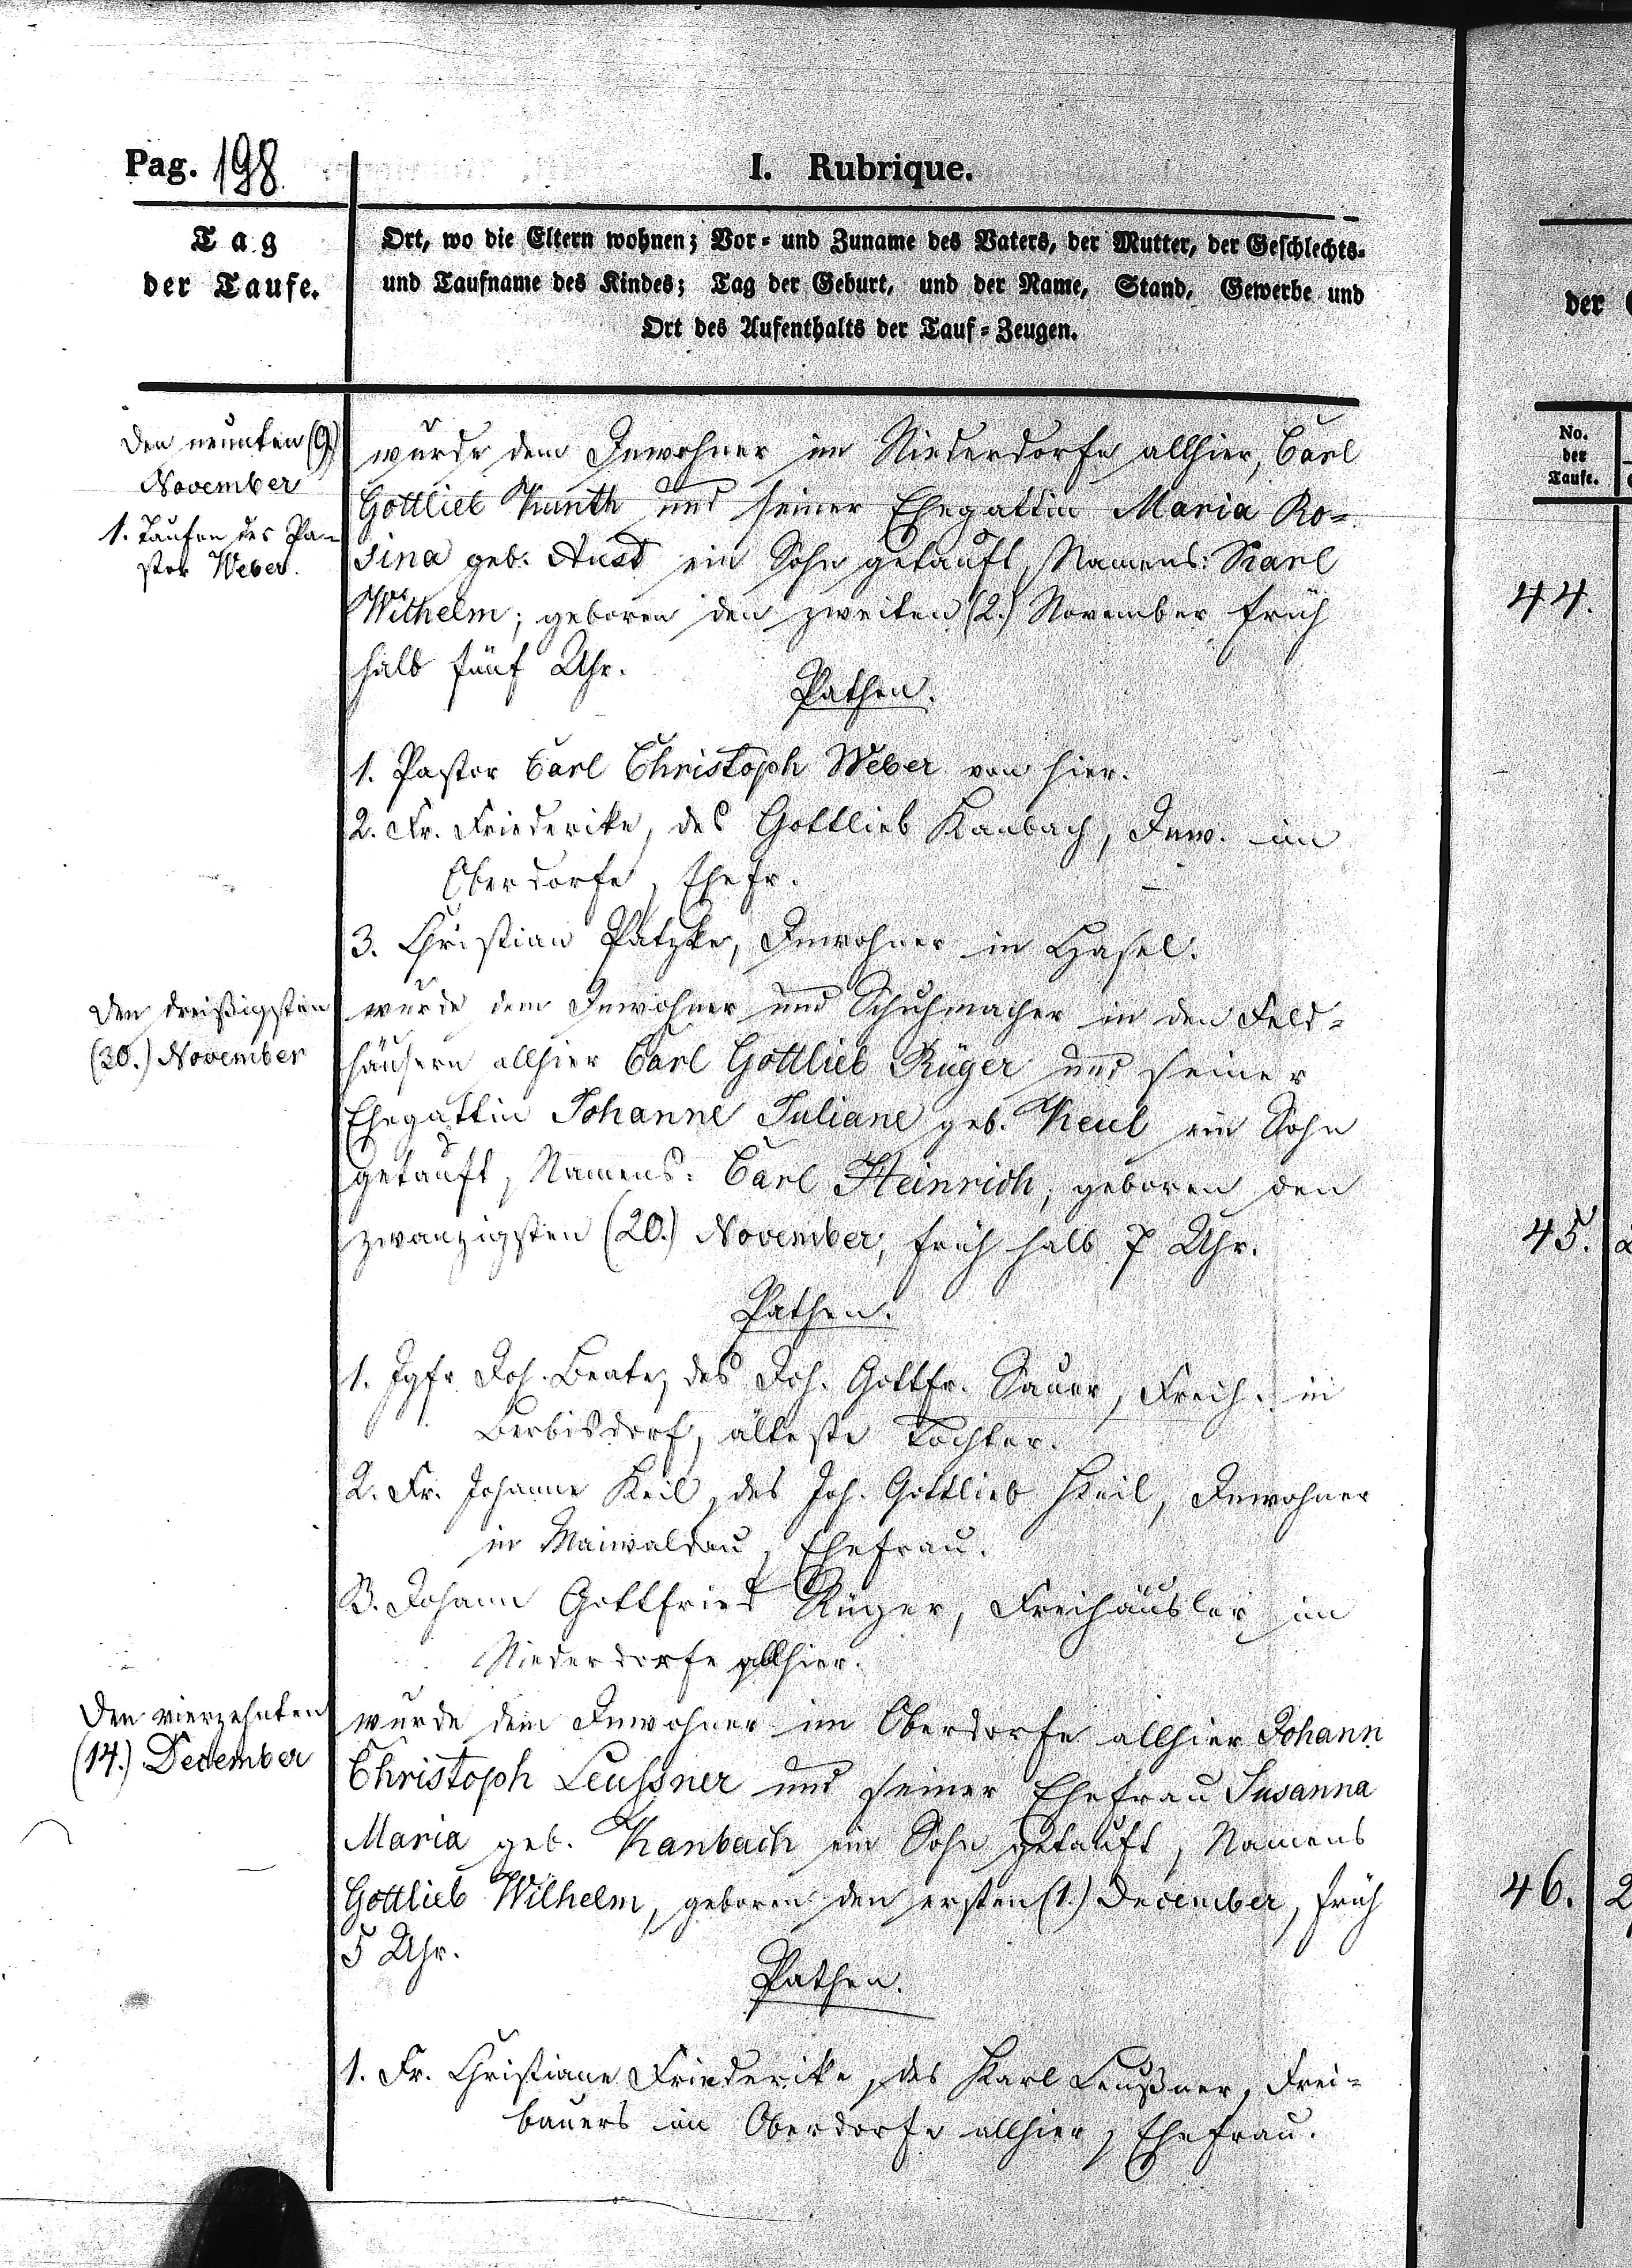 Pag. 198.
I. Rubrique.
Tag
der Taufe.
Ort, wo die Eltern wohnen; Vor- und Zuname des Vaters, der Mutter, der Geschlechts-
und Taufname des Kindes; Tag der Geburt, und der Name, Stand, Gewerbe und
Ort des Aufenthalts der Tauf-Zeugen.
den neunten (9.)
November
1. Taufen des Pa-
stor Weber.
wurde dem Inwohner im Niederdorfe allhier, Carl
Gottlieb Kunth und seiner Ehegattin Maria Ro-
sina geb. Aust ein Sohn getauft, Namens: Karl
Wilhelm; geboren den zweiten (2.) November früh
halb fünf Uhr.
Pathen.
1. Pastor Carl Christoph Weber von hier.
2. Fr. Friederike, des Gottlieb Kanbach, Inw. im
Oberdorfe, Ehefr.
3. Christian Patzke, Inwohner in Hasel.
den dreißigsten
(30.) November
wurde dem Inwohner und Schuhmacher in den Feld-
häusern allhier Carl Gottlieb Rüger und seiner
Ehegattin Johanne Juliane geb. Keul ein Sohn
getauft, Namens: Carl Heinrich, geboren den
zwanzigsten (20.) November, früh halb 7 Uhr.
Pathen.
1. Jgfr. Joh. Beate, des Joh. Gottfr. Sauer, Freih. in
Berbisdorf, älteste Tochter.
2. Fr. Johanne Keil, des Joh. Gottlieb Keil, Inwohner
in Maiwaldau, Ehefrau.
3. Johann Gottfried Rüger, Freihäusler im
Niederdorfe allhier.
den vierzehnten
(14.) December
wurde dem Inwohner im Oberdorfe allhier Johann
Christoph Leussner und seiner Ehefrau Susanna
Maria geb. Kanbach ein Sohn getauft, Namens
Gottlieb Wilhelm, geboren den ersten (1.) December, früh
5 Uhr.
Pathen.
1. Fr. Christiane Friederike, des Karl Leußner, Frei-
bauers im Oberdorfe allhier, Ehefrau.
der
No.
der
Taufe.
44.
45.
46.